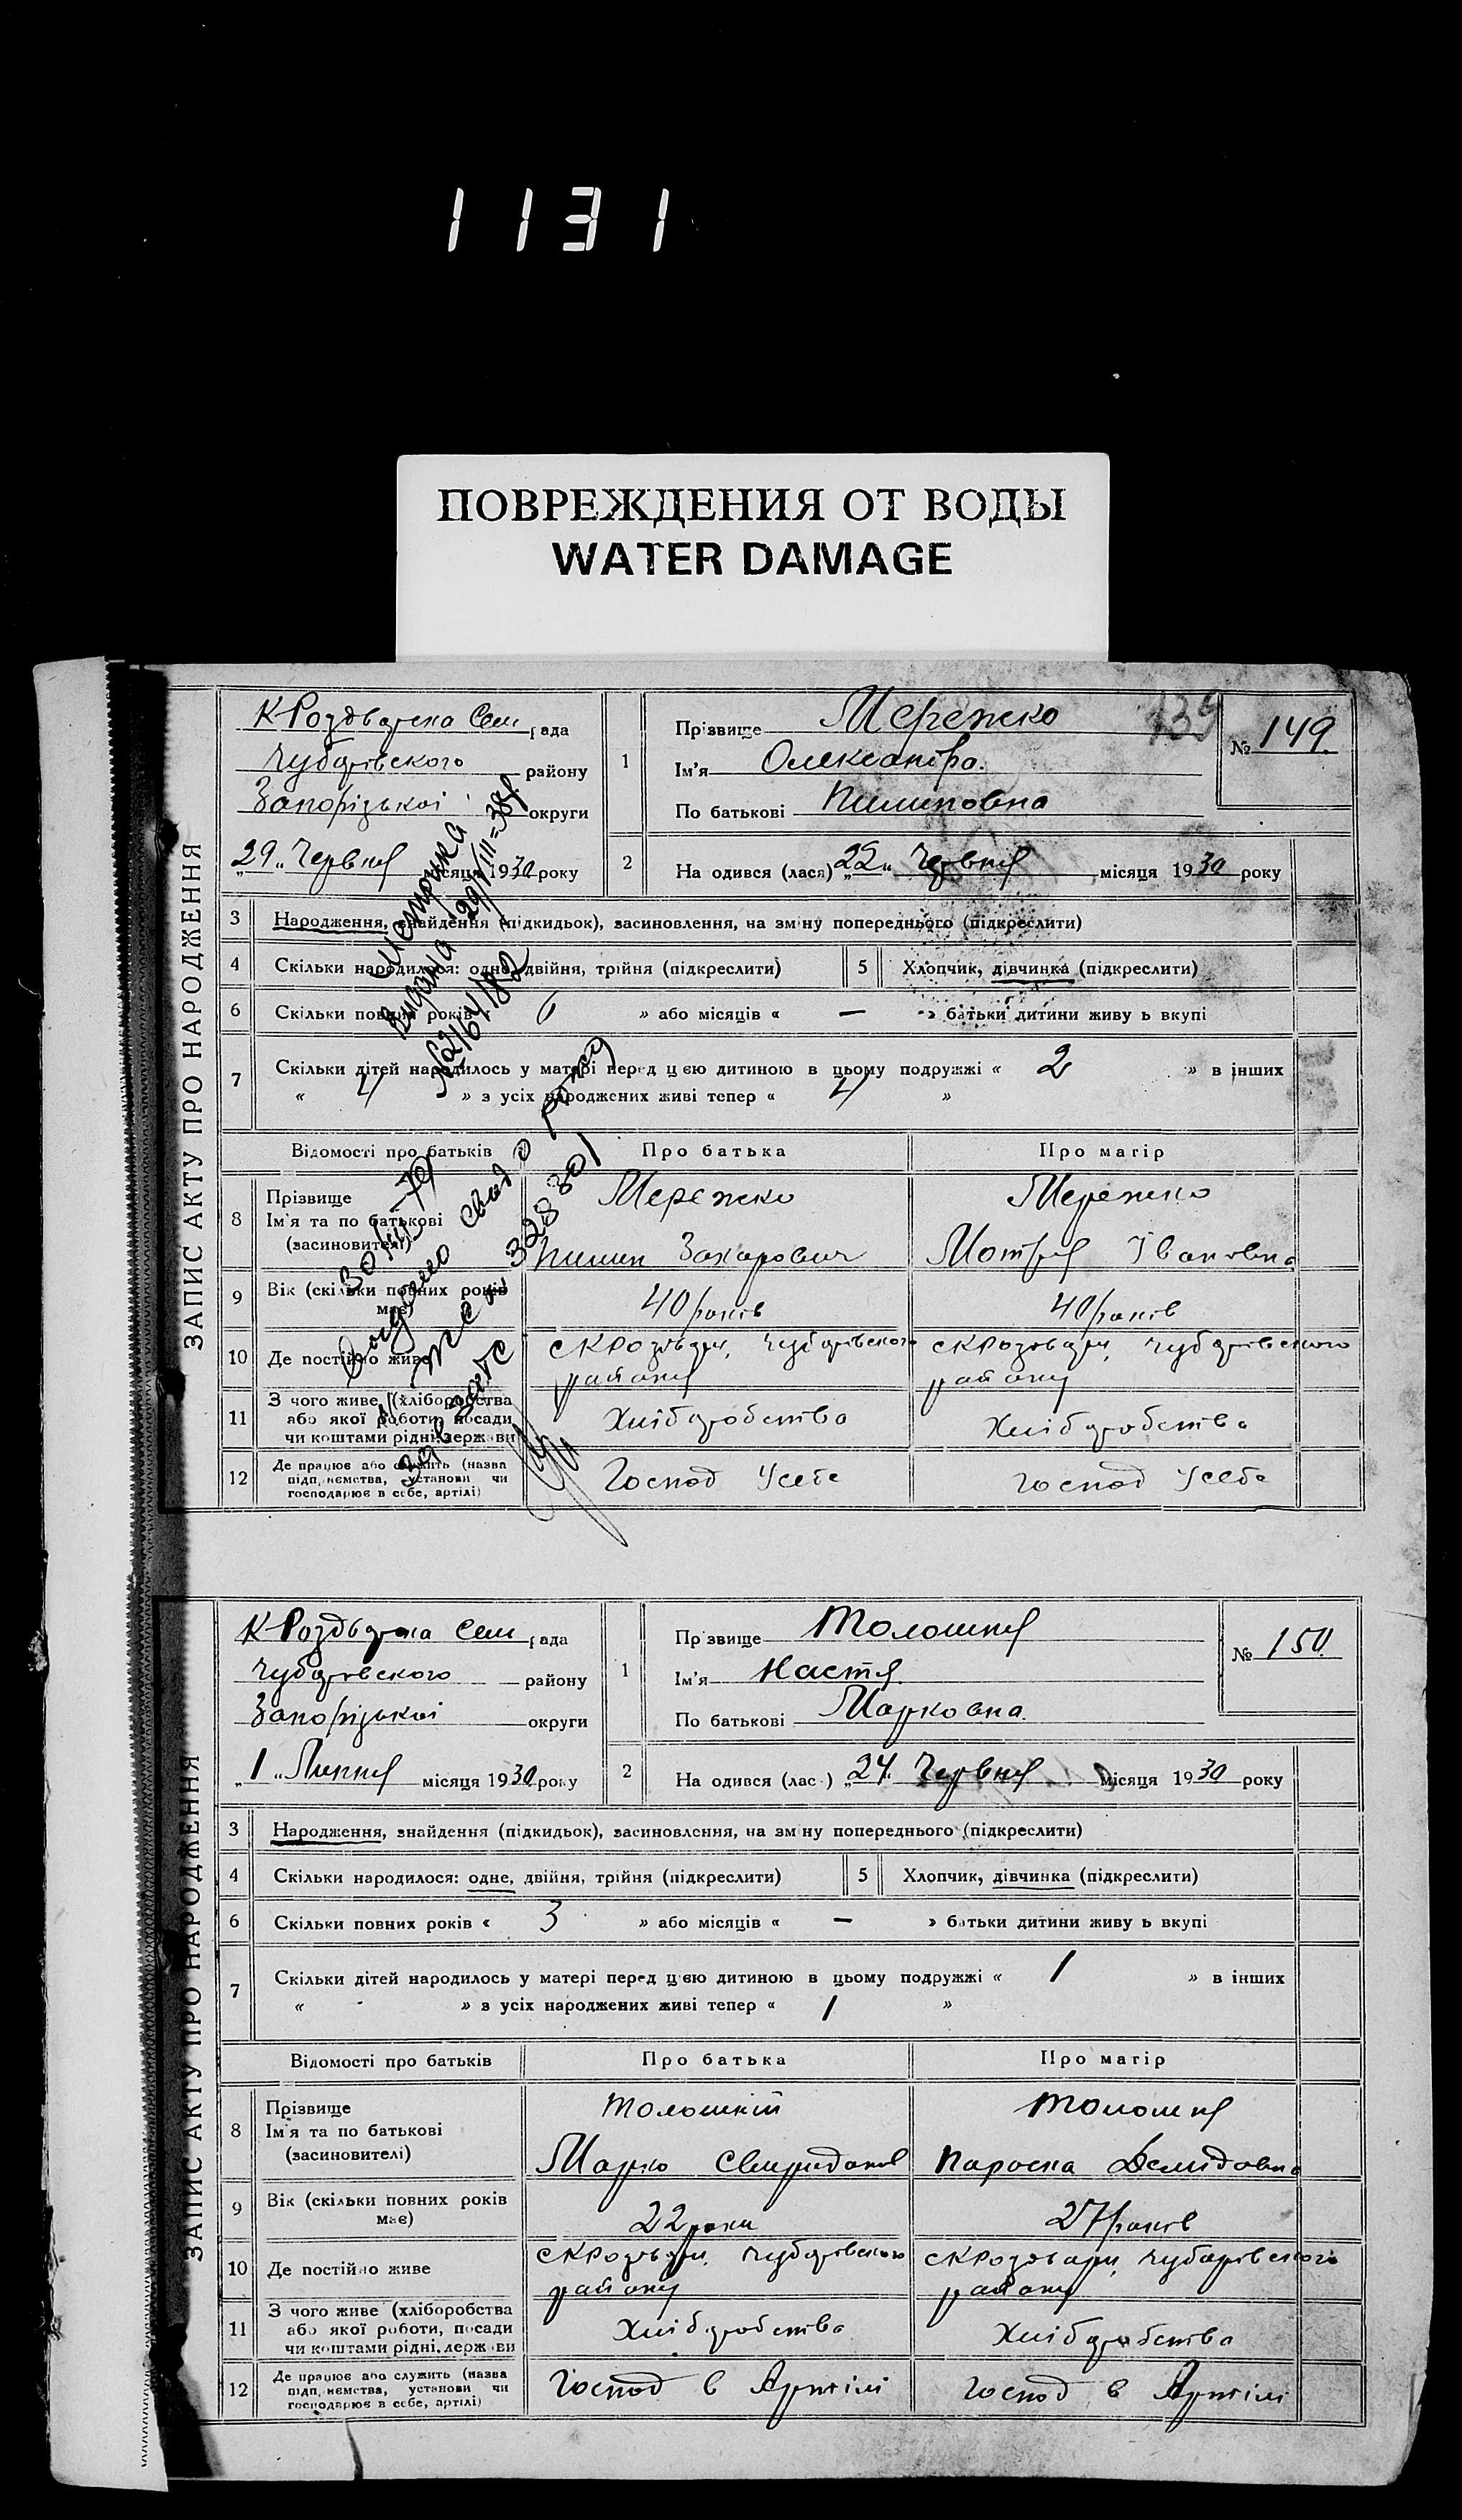 1131
ПОВРЕЖДЕНИЯ ОТ ВОДЫ
WATER DAMAGE
139
ЗАПИС АКТУ ПРО НАРОДЖЕННЯ
К Роздорська Сем рада
Чубарівського району
Запорізької округи
„29„ Червня місяця 1930 року
1
Прізвище Мережко
Ім'я Олександра.
По батькові Пилиповна
№ 149.
2
На одився (лася) „22„ Червня місяця 1930 року
3 Народження, знайдення (підкидьок), засиновлення, на зміну попереднього (підкреслити)
4 Скільки народилося: одне, двійня, трійня (підкреслити)
5 Хлопчик, дівчинка (підкреслити)
6 Скільки повних років « 6 » або місяців « — » батьки дитини живу ь вкупі
7 Скільки дітей народилось у матері перед цією дитиною в цьому подружжі « 2 » в інших
« 4 » з усіх народжених живі тепер « 4 »
Відомості про батьків Про батька Про матір
8 Прізвище
Ім'я та по батькові
(засиновителі)
Мережко
Пилип Захарович
Мережко
Мотря Івановна
9 Вік (скільки повних років має)
40 років
40 років
10 Де постійно живе
району
району
11 З чого живе (хліборобства
або якої роботи, посади
чи коштами рідні, держави
Хліборобства
Хліборобства
12 Де працює або служить (назва
підприємства, установи чи
господарює в себе, артілі)
Господ Усебе
Господ Усебе
Метрика
Видана 29/III=38р
№ 2164182
30/III-79
328301
ЗАПИС АКТУ ПРО НАРОДЖЕННЯ
К Роздорська Сем рада
Чубарівського району
Запорізької округи
„1„ Липня місяця 1930 року
1
Пр звище Толошня
Ім'я Настя
По батькові Марковна.
№ 150.
2
На одився (лас ) „24„ Червня місяця 1930 року
3 Народження, знайдення (підкидьок), засиновлення, на зміну попереднього (підкреслити)
4 Скільки народилося: одне, двійня, трійня (підкреслити)
5 Хлопчик, дівчинка (підкреслити)
6 Скільки повних років « 3 » або місяців « — » батьки дитини живу ь вкупі
7 Скільки дітей народилось у матері перед цією дитиною в цьому подружжі « 1 » в інших
« » з усіх народжених живі тепер « 1 »
Відомості про батьків Про батька Про матір
8 Прізвище
Ім'я та по батькові
(засиновителі)
Марко Свиридонов
Толошня
Параска Демидовна
9 Вік (скільки повних років має)
22 роки
27 років
10 Де постійно живе
Чубарівського
району
Чубарівського
району
11 З чого живе (хліборобства
або якої роботи, посади
чи коштами рідні, держави
Хліборобства
Хліборобства
12 Де працює або служить (назва
підприємства, установи чи
господарює в себе, артілі)
Господ в Артілі
Господ в Артілі